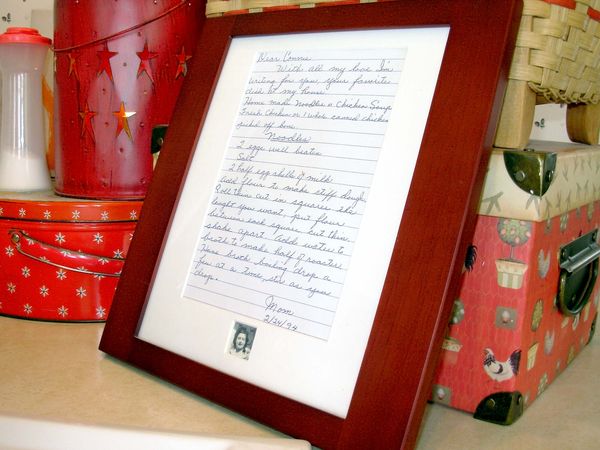 Dear Connie
With all my love I'm
writing for you, your favorite
dish at my house.
Home made Noodles & Chicken Soup
Fresh Chicken or 1 whole canned chicken
picked off bone.
Noodles
2 eggs well beaten
Salt
2 half egg shells of milk
Add flour to make stiff dough.
Roll thin cut in squares the
lenght you want, put flour
between each square but then
shake apart. Add water to
broth to make half of roaster.
Have broth boiling drop a
few at a time, stir as you
drop.
Mom
2/24/94